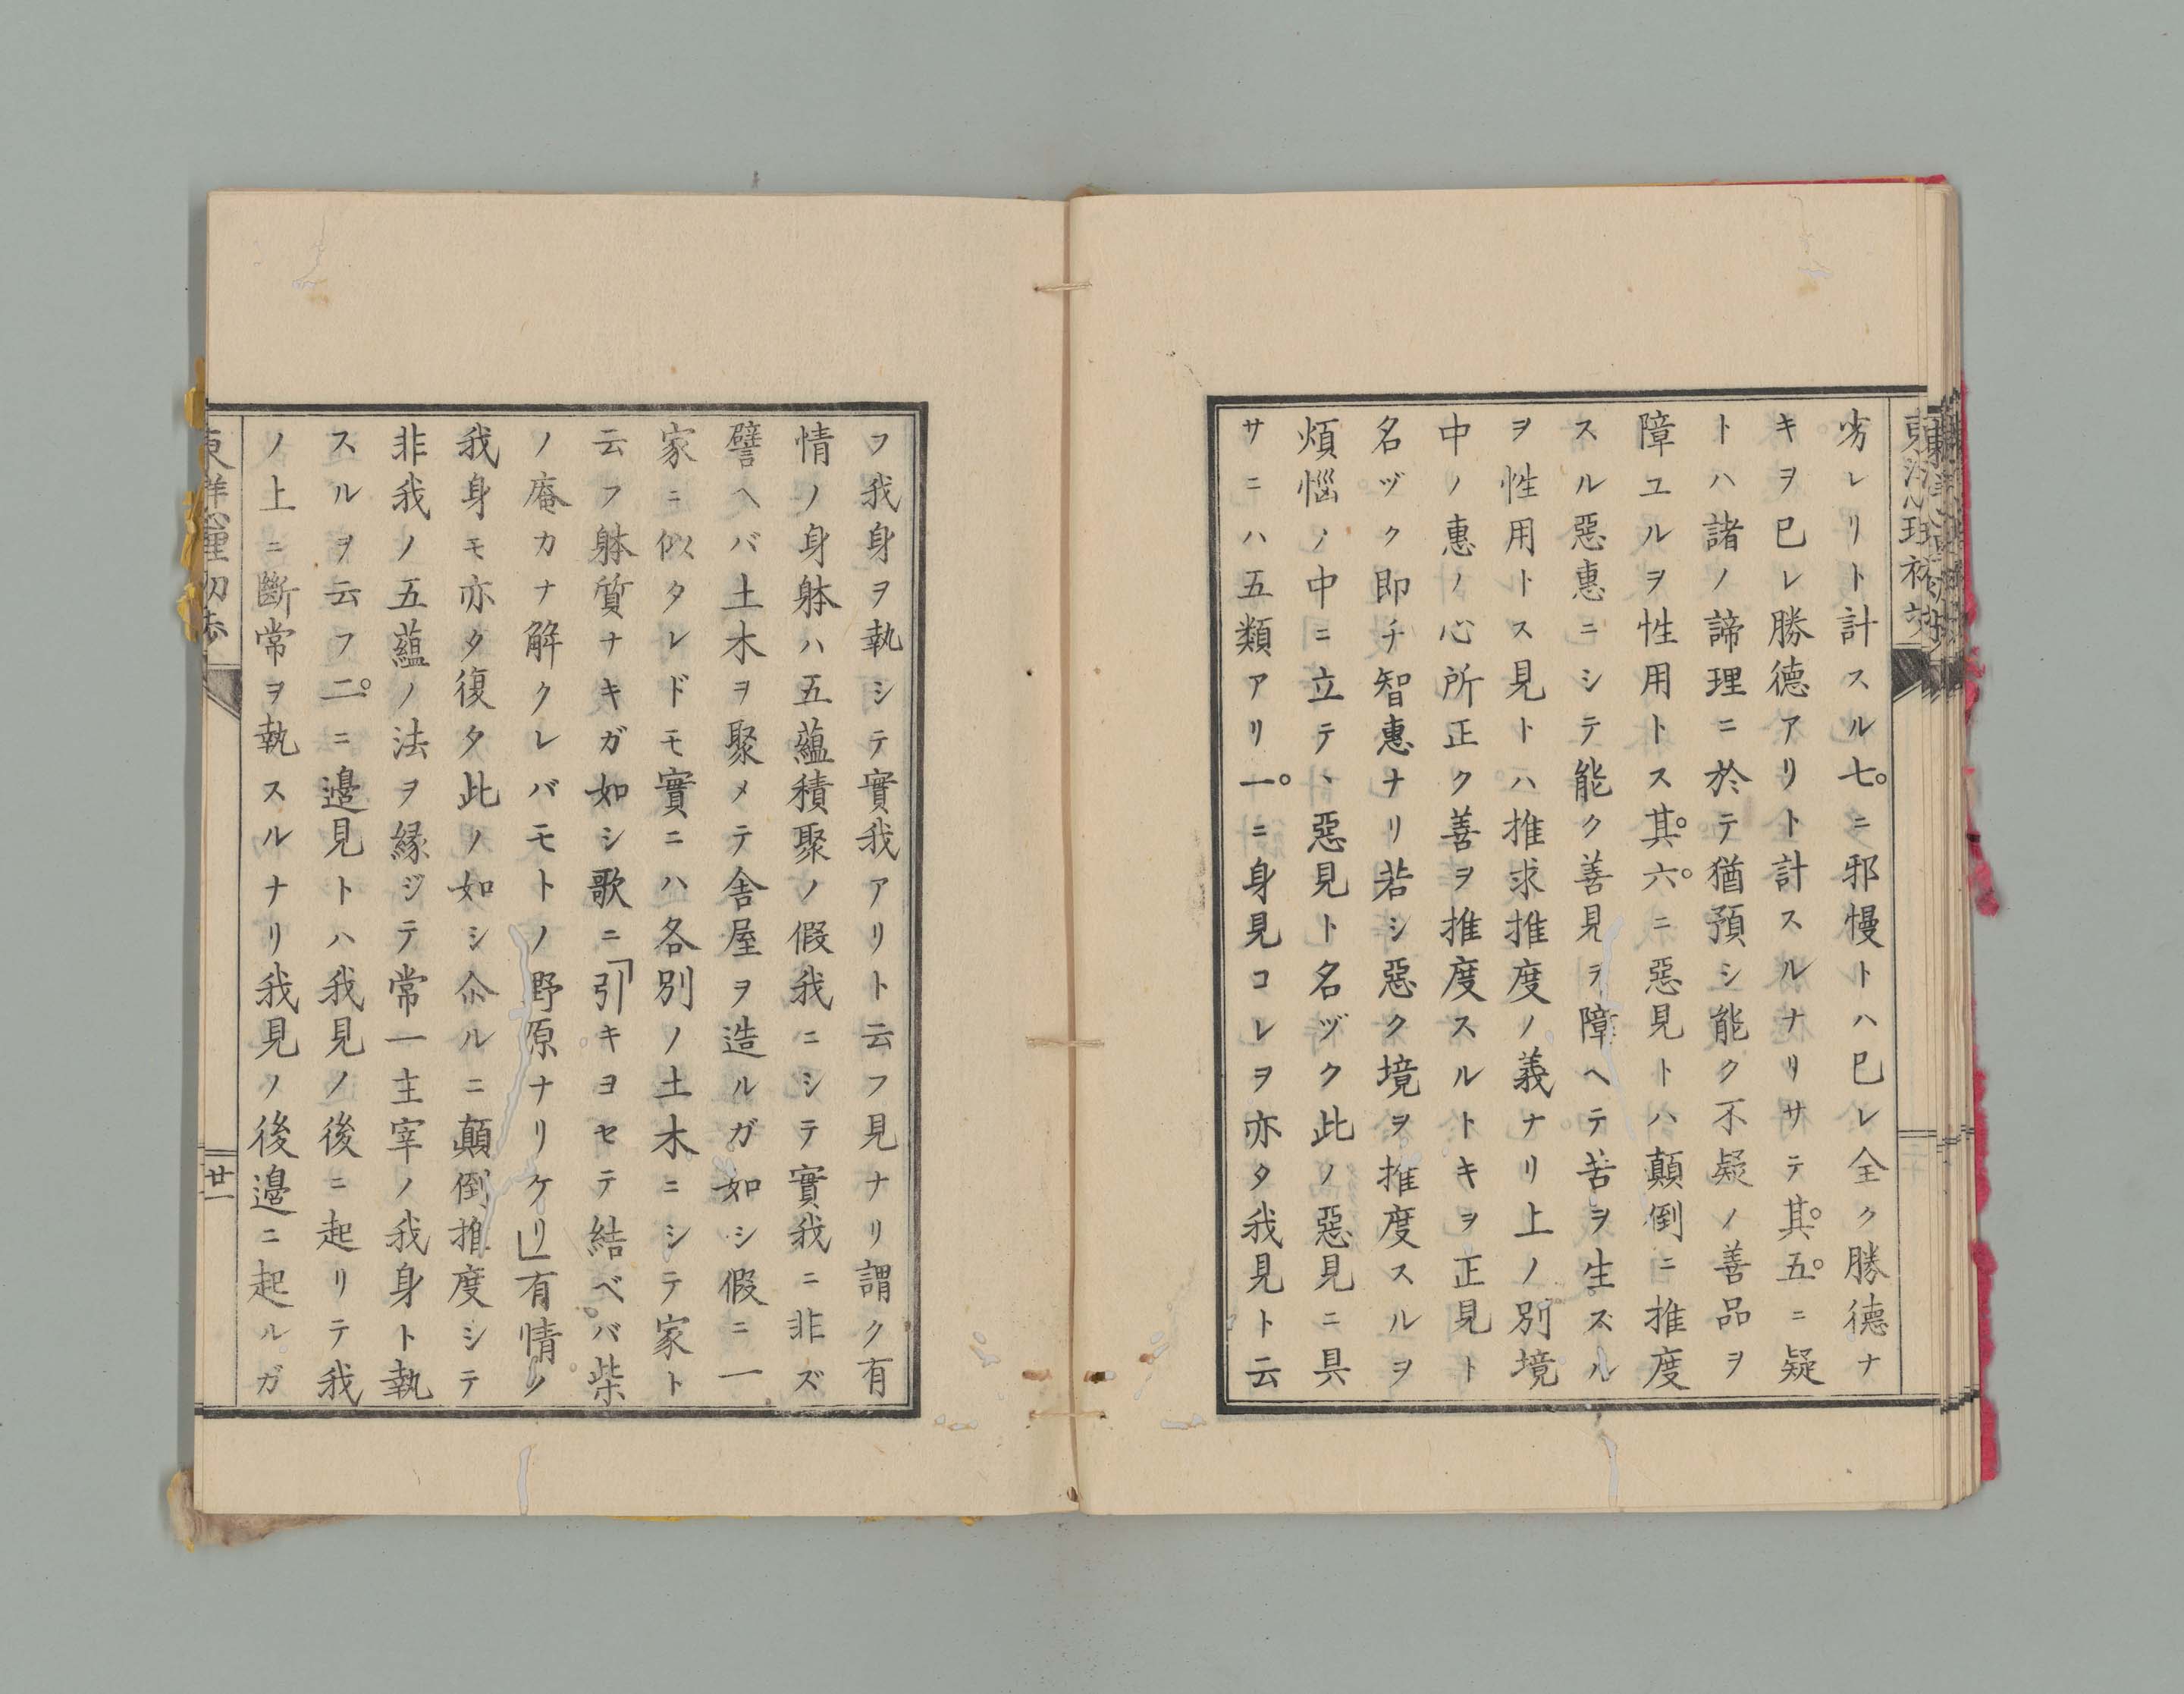 劣レリト計スル七。ニ邪慢トハ巳レ全ク勝德ナ
キヲ巳レ勝德アリト計スルナリサテ其。五。ニ疑
トハ諸ノ諦理ニ於テ猶預シ能ク不疑ノ善品ヲ
障ユルヲ性用トス其。六。ニ惡見トハ顛倒ニ推度
スル惡惠ニシテ能ク善見ヲ障ヘテ苦ヲ生ズル
ヲ性用トス見トハ推求推度ノ義ナリ上ノ別境
中ノ惠ノ心所正ク善ヲ推度スルトキヲ正見ト
名ヅク即チ智惠ナリ若シ惡ク境ヲ推度スルヲ
煩惱ノ中ニ立テ、惡見ト名ヅク此ノ惡見ニ具
サニハ五類アリ一。ニ身見コレヲ亦タ我見ト云
フ我身ヲ執シテ實我アリト云フ見ナリ謂ク有
情ノ身躰ハ五蘊積聚ノ假我ニシテ實我ニ非ズ
譬ヘバ土木ヲ聚メテ舎屋ヲ造ルガ如シ假ニ一
家ニ似タレドモ實ニハ各別ノ土木ニシテ家ト
云フ躰質ナキガ如シ歌ニ「引キヨセテ結ベバ柴
ノ庵カナ解クレバモトノ野原ナリケリ」有情ノ
我身モ亦タ復タ此ノ如シ尒ルニ顛倒推度シテ
非我ノ五蘊ノ法ヲ縁ジテ常一主宰ノ我身ト執
スルヲ云フ二。ニ邉見トハ我見ノ後ニ起リテ我
ノ上ニ斷常ヲ執スルナリ我見ノ後邉ニ起ルガ
廿一